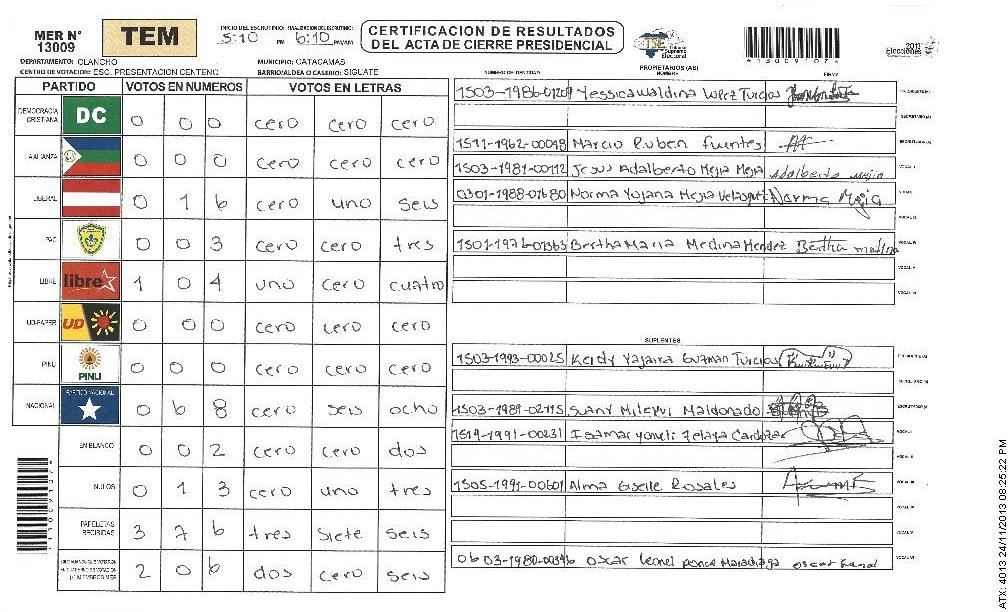 MER N° 13009
TEM
INICIO DEL ESCRUTINIO: 5:10 PM FINALIZACION DEL ESCRUTINIO: 6:10 PM/AM
CERTIFICACION DE RESULTADOS
DEL ACTA DE CIERRE PRESIDENCIAL
TSE Tribunal Supremo Electoral
Elecciones 2013
DEPARTAMENTO: OLANCHO
MUNICIPIO: CATACAMAS
CENTRO DE VOTACION: ESC. PRESENTACION CENTENO
BARRIO/ALDEA O CASERIO: SIGUATE
PROPIETARIOS (AS)
NUMERO DE IDENTIDAD NOMBRE FIRMA
PARTIDO VOTOS EN NUMEROS VOTOS EN LETRAS
DEMOCRACIA CRISTIANA DC 0 0 0 cero cero cero
LA ALIANZA 0 0 0 cero cero cero
LIBERAL 0 1 6 cero uno seis
PAC 0 0 3 cero cero tres
LIBRE libre 1 0 4 uno cero cuatro
UD-FAPER UD 0 0 0 cero cero cero
PINU PINU 0 0 0 cero cero cero
NACIONAL PARTIDO NACIONAL 0 6 8 cero seis ocho
EN BLANCO 0 0 2 cero cero dos
NULOS 0 1 3 cero uno tres
PAPELETAS RECIBIDAS 3 7 6 tres siete seis
CIUDADANOS QUE VOTARON 2 0 6 dos cero seis
1503-1986-01209 Yessica Waldina Lopez Turcios
1511-1962-00048 Marcio Ruben Fuentes
1503-1981-00112 Jesus Adalberto Mejia Mejia Adalberto Mejia
0301-1988-01680 Norma Yojana Mejia Norma Mejia
Bertha Maria Medina Mendez Bertha Medina
SUPLENTES
1503-1993-00025 Keidy Yajaira Guzman Turcios
1503-1989-02115 Maldonado
1519-1991-00231 Zelaya
1505-1991-00601 Alma Giselle Rosales
Oscar Leonel Ponce
ATX: 4013 24/11/2013 08:25:22 PM